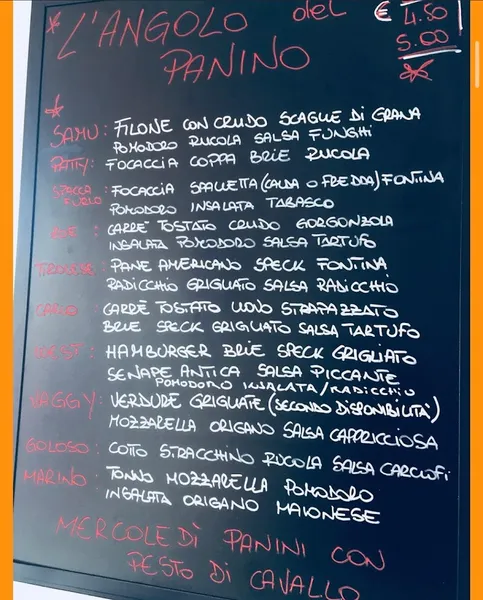 L'ANGOLO del
PANINO
€ 4.50
5.00
SAMU: FILONE CON CRUDO SCAGLIE DI GRANA
POMODORO RUCOLA SALSA FUNGHI
PATTY: FOCACCIA COPPA BRIE RUCOLA
SPACCA FURLO: FOCACCIA SPALLETTA (CALDA O FREDDA) FONTINA
POMODORO INSALATA TABASCO
CARRÈ TOSTATO CRUDO GORGONZOLA
INSALATA POMODORO SALSA TARTUFO
TIROLESE: PANE AMERICANO SPECK FONTINA
RADICCHIO GRIGLIATO SALSA RADICCHIO
CARLO: CARRÈ TOSTATO UOVO STRAPAZZATO
BRIE SPECK GRIGLIATO SALSA TARTUFO
WEST: HAMBURGER BRIE SPECK GRIGLIATO
SENAPE ANTICA SALSA PICCANTE
POMODORO INSALATA/RADICCHIO
VAGGY: VERDURE GRIGLIATE (SECONDO DISPONIBILITÀ)
MOZZARELLA ORIGANO SALSA CAPRICCIOSA
GOLOSO: COTTO STRACCHINO RUCOLA SALSA CARCIOFI
MARINO: TONNO MOZZARELLA POMODORO
INSALATA ORIGANO MAIONESE
MERCOLEDÌ PANINI CON
PESTO DI CAVALLO